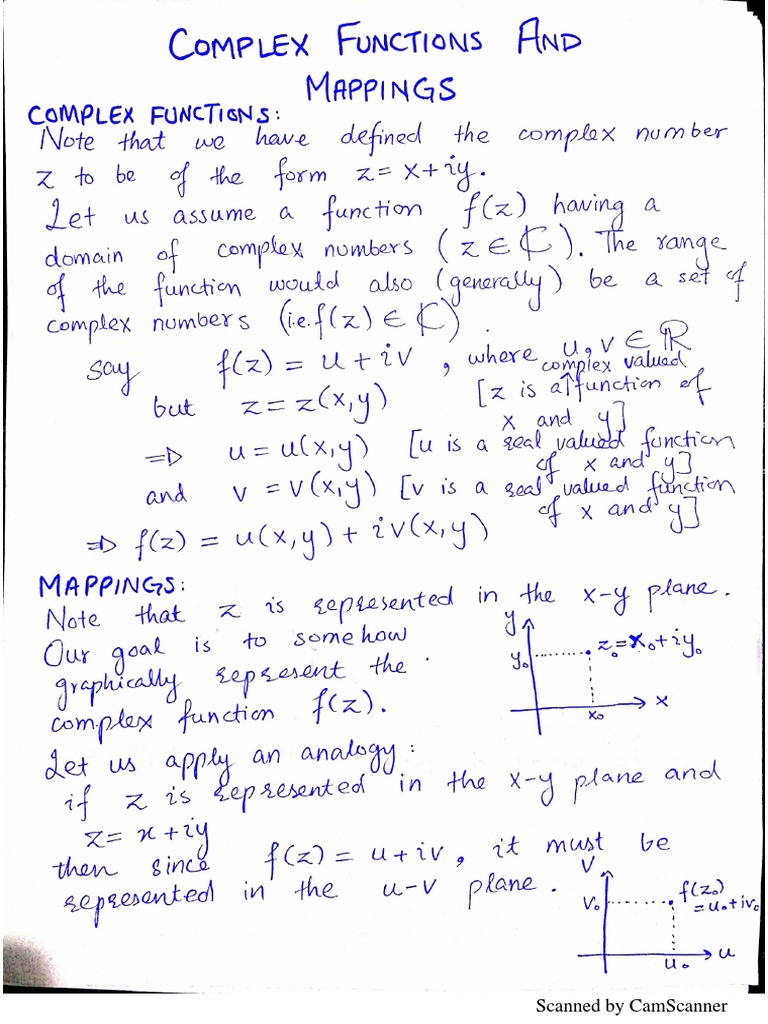 COMPLEX FUNCTIONS AND
MAPPINGS
COMPLEX FUNCTIONS:
Note that we have defined the complex number
z to be of the form z = x+iy.
Let us assume a function f(z) having a
domain of complex numbers (z ∈ ℂ). The range
of the function would also (generally) be a set of
complex numbers (i.e. f(z) ∈ ℂ).
say f(z) = u + iv , where u, v ∈ ℝ
but z = z(x,y) [z is a complex valued function of
x and y]
⇒ u = u(x,y) [u is a real valued function
of x and y]
and v = v(x,y) [v is a real valued function
of x and y]
⇒ f(z) = u(x,y) + iv(x,y)
MAPPINGS:
Note that z is represented in the x-y plane.
Our goal is to somehow
graphically represent the
complex function f(z).
y
y₀
z₀=x₀+iy₀
x₀
x
Let us apply an analogy:
if z is represented in the x-y plane and
z = x+iy
then since f(z) = u+iv, it must be
represented in the u-v plane.
v
v₀
f(z₀)
=u₀+iv₀
u₀
u
Scanned by CamScanner